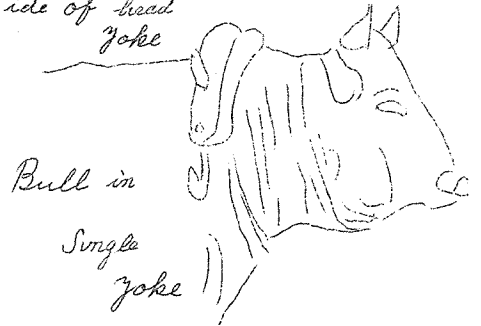 ide of head
Yoke
Bull in
Single
Yoke